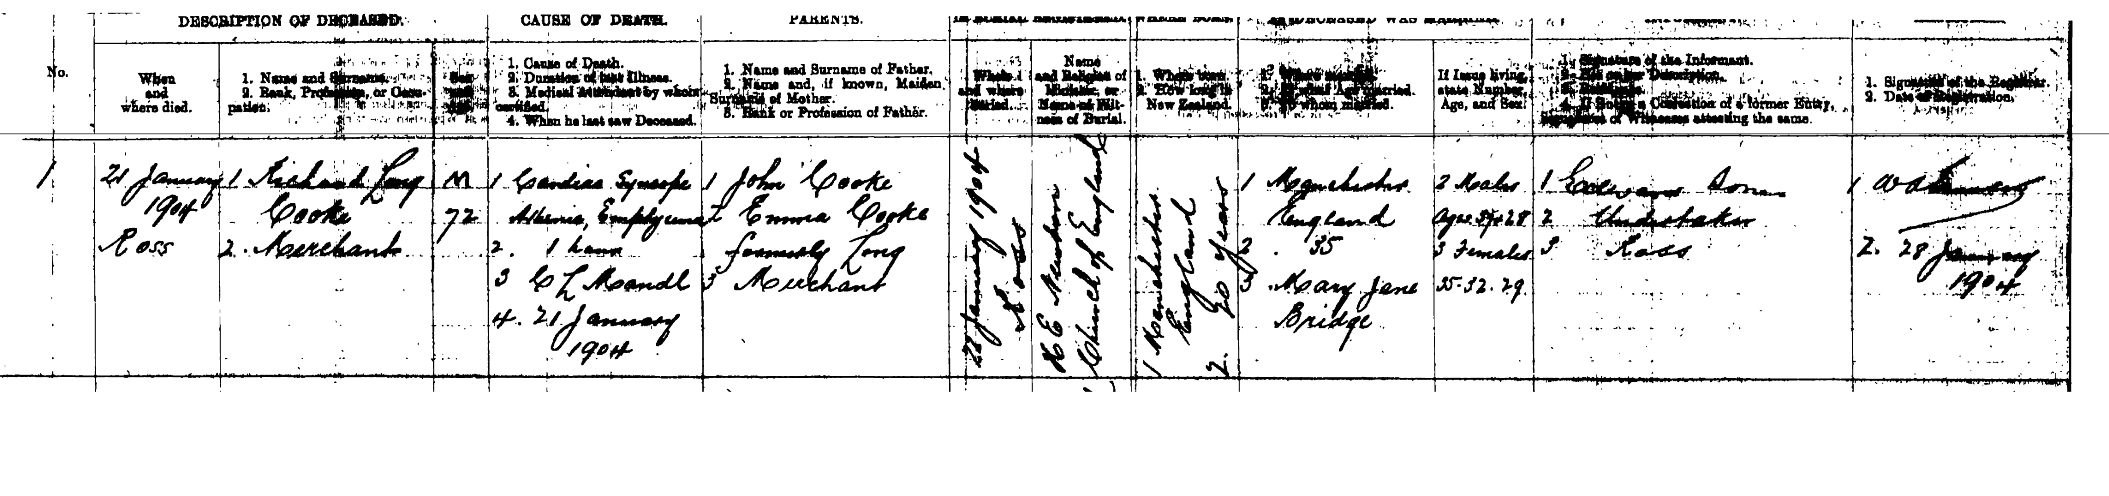 DESCRIPTION OF DECEASED.
CAUSE OF DEATH.
PARENTS.
No.
When
and
where died.
1. Name and Surname.
2. Rank, Profession, or Occu-
pation.
1. Cause of Death.
2. Duration of last Illness.
3. Medical Attendant by whom
certified.
4. When he last saw Deceased.
1. Name and Surname of Father.
2. Name and, if known, Maiden
Surname of Mother.
3. Rank or Profession of Father.
When
and where
Buried.
Name
and Religion of
Minister, or
Name of Wit-
ness of Burial.
1. Where born.
2. How long in
New Zealand.
1. Where married.
2. At what Age married.
3. To whom married.
If Issue living,
state Number,
Age, and Sex.
1. Signature of the Informant.
2. Description.
3. Residence.
4. If Entry a Correction of a former Entry,
Signatures of Witnesses attesting the same.
1. Signature of the Registrar.
2. Date of Registration.
1
21 January
1904
Ross
1 Richard Long
Cooke
2. Merchant
M
72
1 Cardiac Syncope
Empyema
2. 1 hour
3 C L Mandl
4. 21 January
1904
1 John Cooke
2 Emma Cooke
formerly Long
3 Merchant
January 1904
Ross
H E Newton
Church of England
1 Manchester
England
2. years
1 Manchester
England
2. 35
3 Mary Jane
Bridge
2 Males
Ages 28
3 Females
35. 32. 29.
1
2 Undertaker
3 Ross
1
2. 28 January
1904